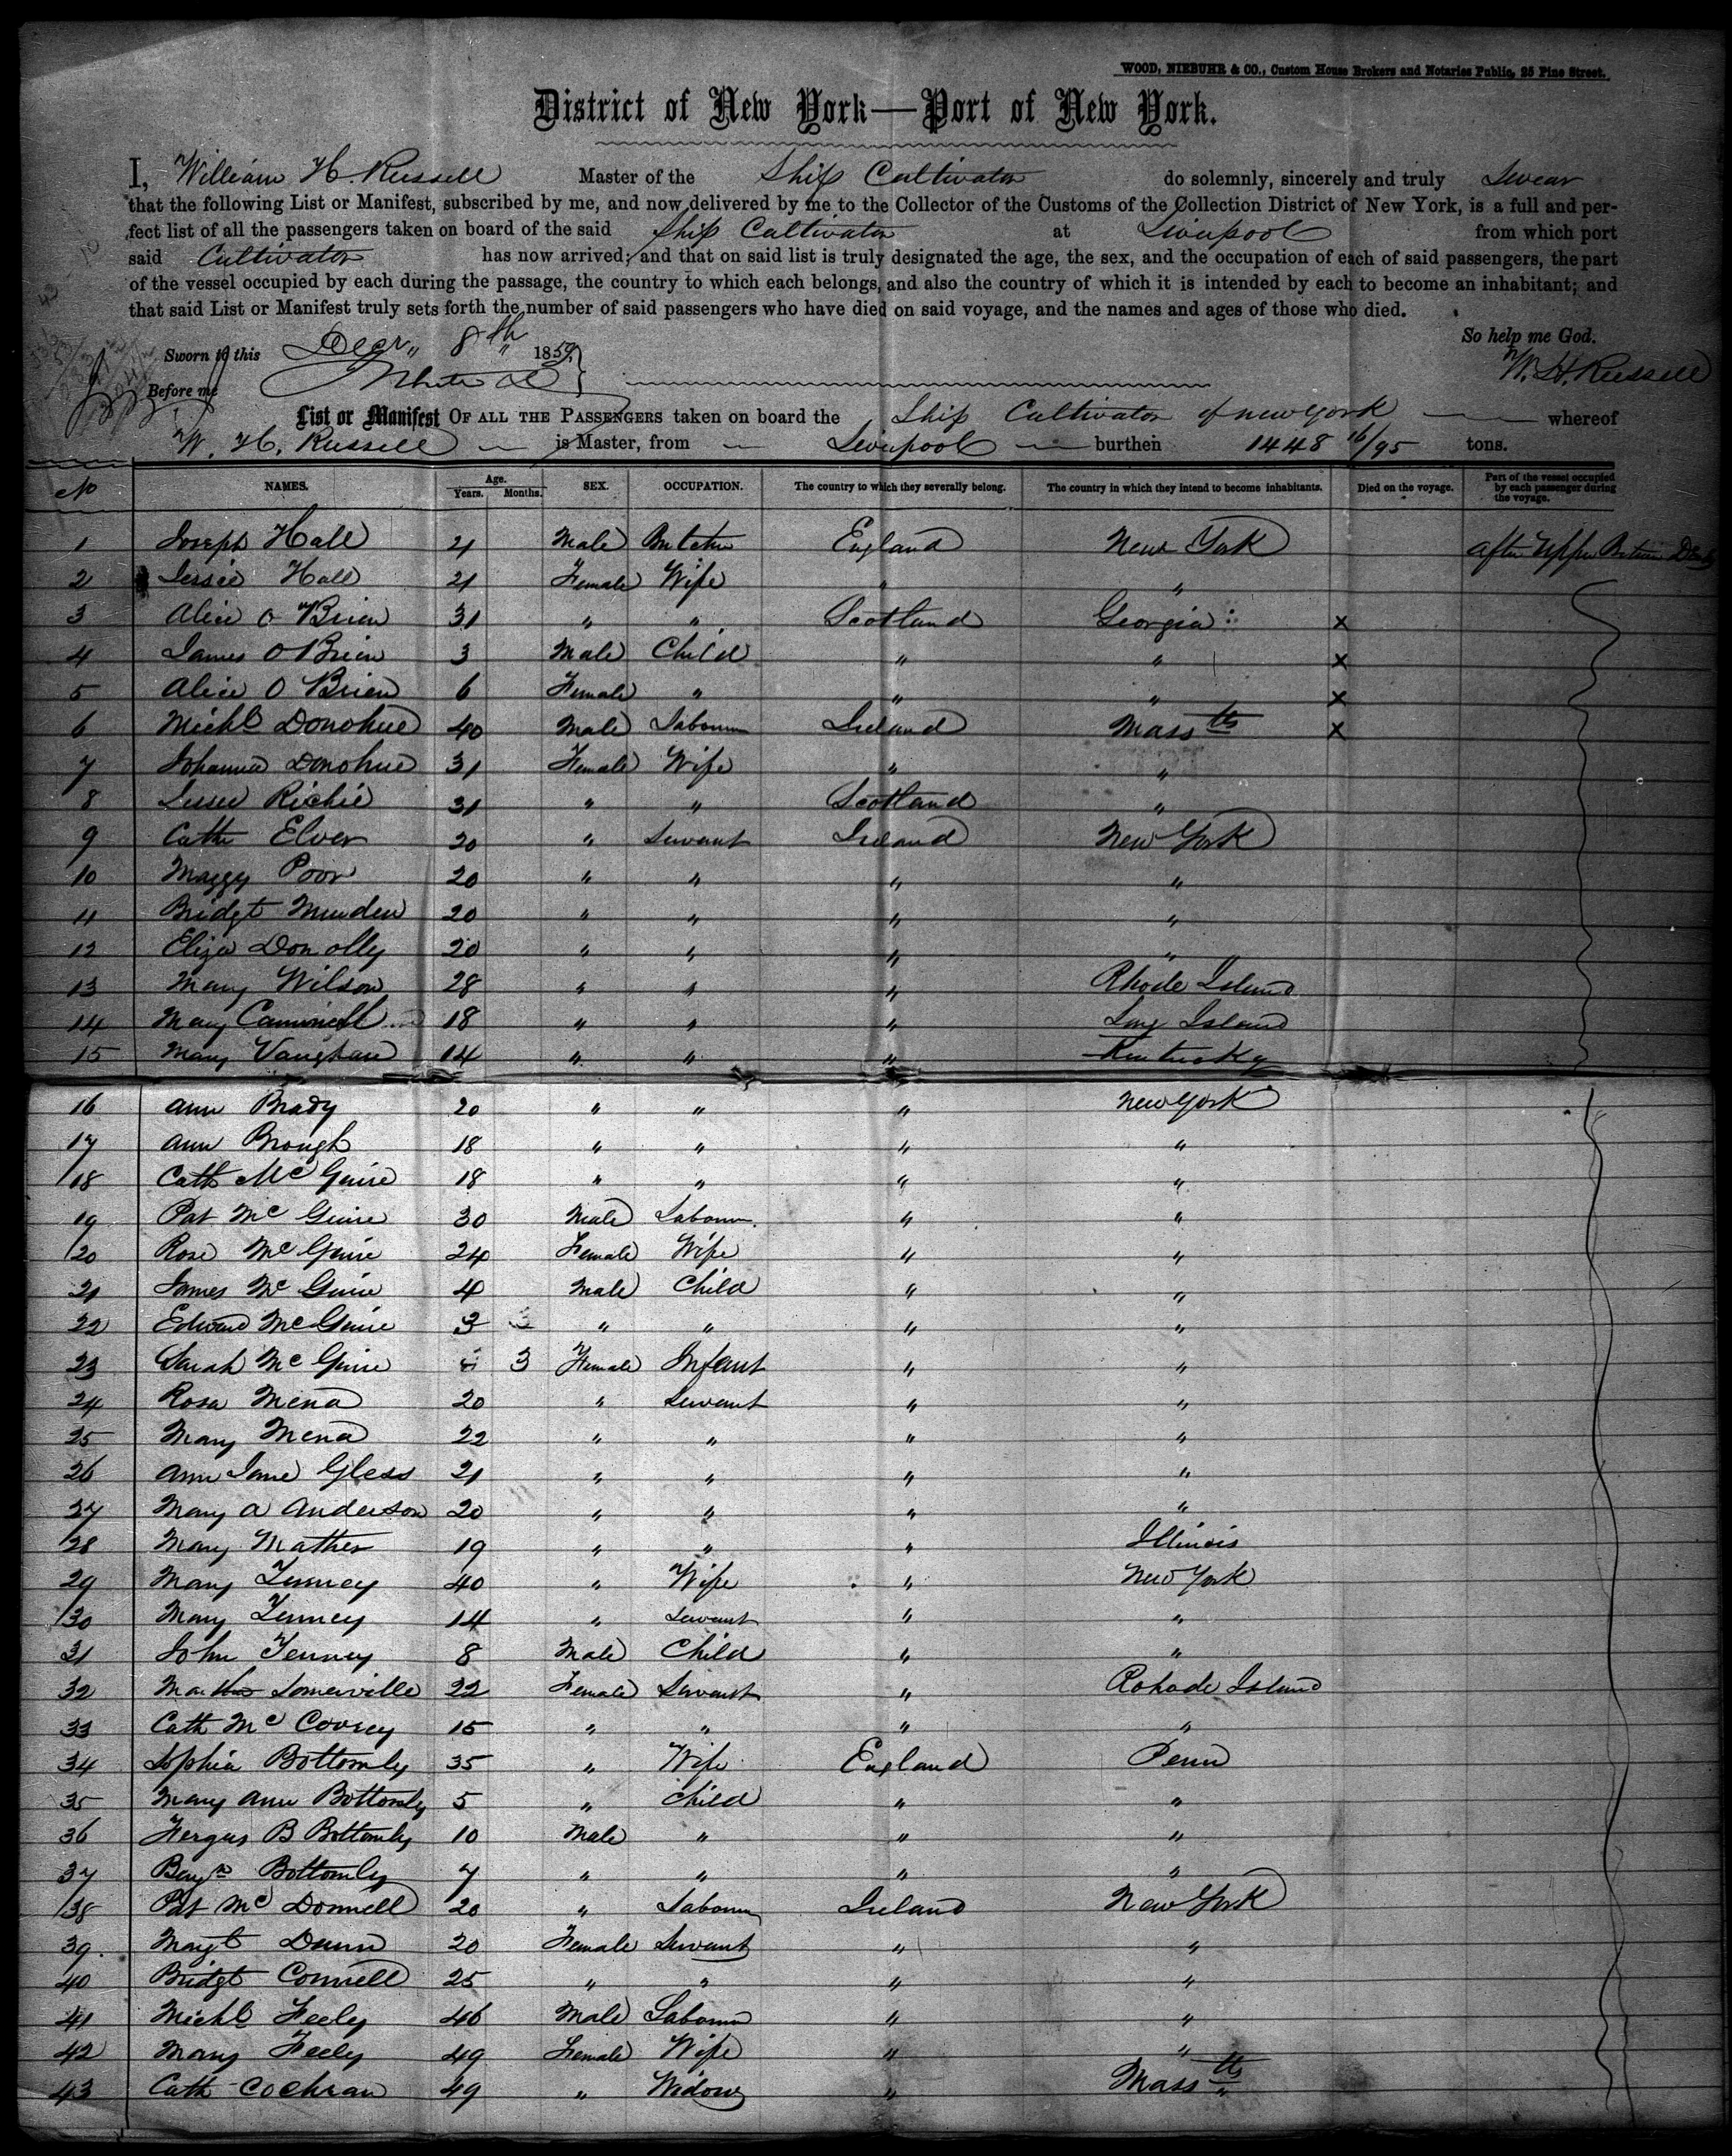 WOOD, NIEBUHR & CO., Custom House Brokers and Notaries Public, 25 Pine Street.
District of New York—Port of New York.
I, William H. Russell Master of the Ship Cultivator do solemnly, sincerely and truly swear
that the following List or Manifest, subscribed by me, and now delivered by me to the Collector of the Customs of the Collection District of New York, is a full and per-
fect list of all the passengers taken on board of the said Ship Cultivator at Liverpool from which port
said Cultivator has now arrived; and that on said list is truly designated the age, the sex, and the occupation of each of said passengers, the part
of the vessel occupied by each during the passage, the country to which each belongs, and also the country of which it is intended by each to become an inhabitant; and
that said List or Manifest truly sets forth the number of said passengers who have died on said voyage, and the names and ages of those who died.
So help me God.
Sworn to this Decr 8th 1859
W. H. Russell
Before me
List or Manifest OF ALL THE PASSENGERS taken on board the Ship Cultivator of new York whereof
W. H. Russell is Master, from Liverpool burthen 1448 16/95 tons.
No NAMES. Age. Years. Months. SEX. OCCUPATION. The country to which they severally belong. The country in which they intend to become inhabitants. Died on the voyage. Part of the vessel occupied by each passenger during the voyage.
1 Joseph Hall 21 Male Butcher England New York after upper Between Deck
2 Jessie Hall 21 Female Wife " "
3 Alice O Brien 31 " " Scotland Georgia x
4 James O Brien 3 Male Child " " x
5 Alice O Brien 6 Female " " " x
6 Michl Donohue 40 Male Labourer Ireland Masstts x
7 Johanna Donohue 31 Female Wife " "
8 Jessee Richie 31 " " Scotland "
9 Cathe Elver 20 " Servant Ireland New York
10 Maggy Poor 20 " " " "
11 Bridgt 20 " " " "
12 Eliza Donolly 20 " " " "
13 Mary Wilson 28 " " " Rhode Island
14 Mary 18 " " " Long Island
15 Mary Vaughan 14 " " " Kentucky
16 Ann Brady 20 " " " New York
17 Ann Brough 18 " " " "
18 Cath McGuire 18 " " " "
19 Pat McGuire 30 Male Labourer " "
20 Rose McGuire 24 Female Wife " "
21 James McGuire 4 Male Child " "
22 Edward McGuire 3 " " " "
23 Sarah McGuire 3 Female Infant " "
24 Rosa Mena 20 " Servant " "
25 Mary Mena 22 " " " "
26 Ann Jane Gless 21 " " " "
27 Mary A Anderson 20 " " " "
28 Mary Mather 19 " " " Illinois
29 Mary Tenney 40 " Wife " New York
30 Mary Tenney 14 " Servant " "
31 John Tenney 8 Male Child " "
32 Martha Somerville 22 Female Servant " Rohode Island
33 Cath Mc Covrey 15 " " " "
34 Sophia Bottomly 35 " Wife England Penn
35 Mary Ann Bottomly 5 " Child " "
36 Fergus B Bottomly 10 Male " " "
37 Benjn Bottomly 7 " " " "
38 Pat McDonnell 20 " Labourer Ireland New York
39. Margt Dunn 20 Female Servant " "
40 Bridgt Connell 25 " " " "
41 Michl Feely 46 Male Labourer " "
42 Mary Feely 49 Female Wife " "
43 Cath Cochran 49 " Widow " Masstts